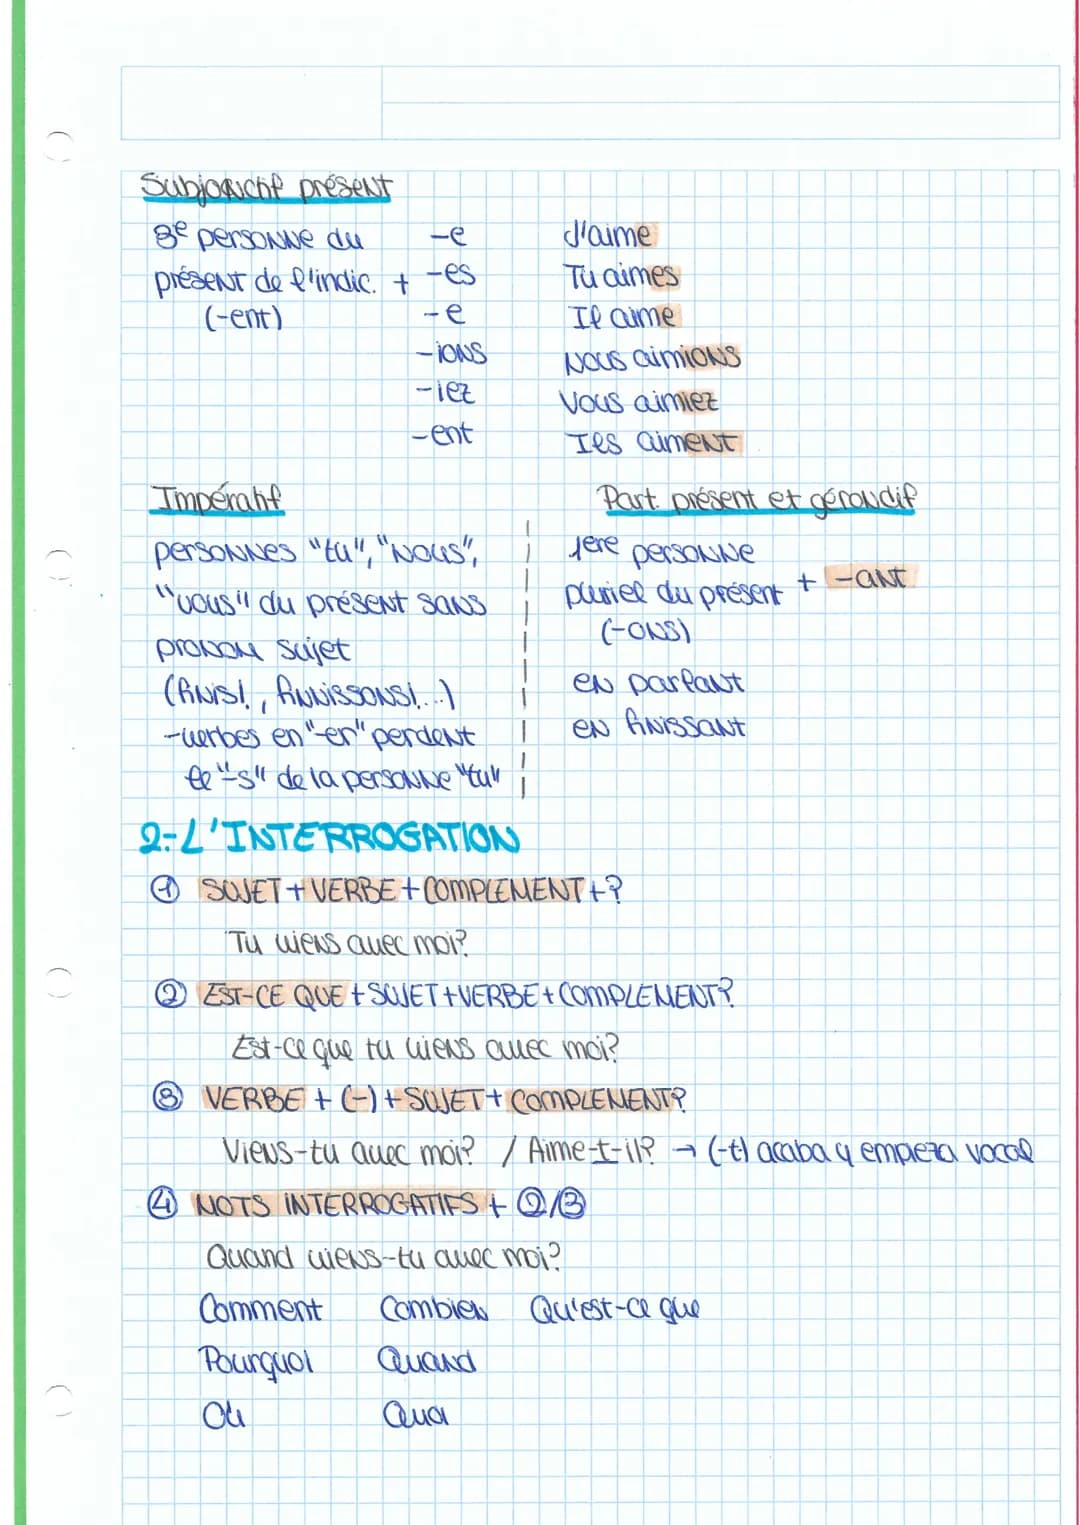 Subjonctif présent
3e personne du -e J'aime
présent de l'indic. + -es Tu aimes
(-ent) -e Il aime
-ions Nous aimions
-iez Vous aimiez
-ent Ils aiment
Impératif
personnes "tu", "nous",
"vous" du présent sans
pronom sujet
(finis!, finnissons!...)
-verbes en "-er" perdent
le "-s" de la personne "tu"
Part. présent et gérondif
1ere personne
pluriel du présent + -ant
(-ons)
en parlant
en finissant
2.- L'INTERROGATION
① SUJET + VERBE + COMPLEMENT + ?
Tu viens avec moi?
② EST-CE QUE + SUJET + VERBE + COMPLEMENT?
Est-ce que tu viens avec moi?
③ VERBE + (-) + SUJET + COMPLEMENT?
Viens-tu avec moi? / Aime-t-il? → (-t) acaba y empieza vocal
④ MOTS INTERROGATIFS + ②/③
Quand viens-tu avec moi?
Comment Combien Qu'est-ce que
Pourquoi Quand
Où Quoi